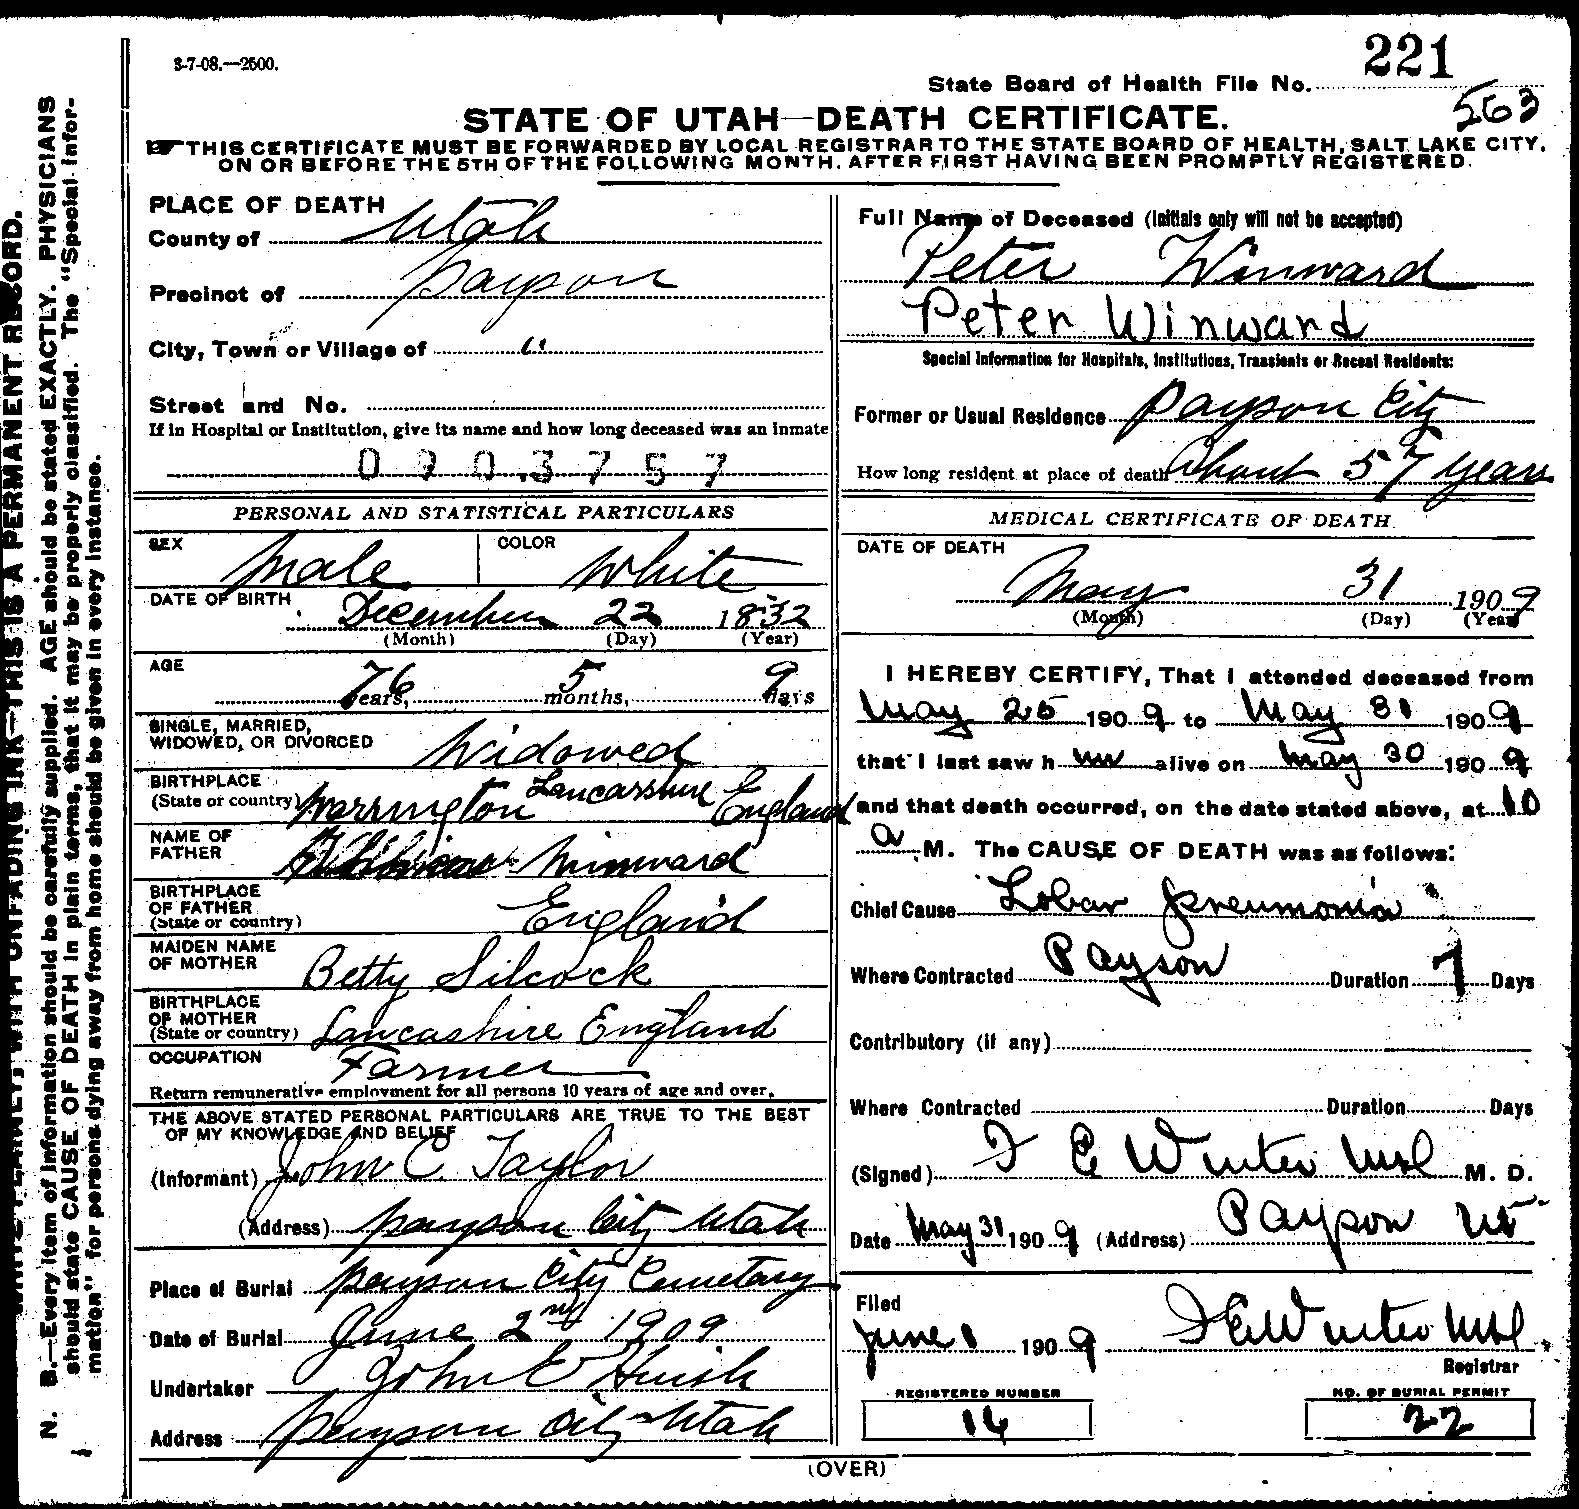 3-7-08.—2500.
State Board of Health File No. 221
563
STATE OF UTAH—DEATH CERTIFICATE.
THIS CERTIFICATE MUST BE FORWARDED BY LOCAL REGISTRAR TO THE STATE BOARD OF HEALTH, SALT LAKE CITY,
ON OR BEFORE THE 5TH OF THE FOLLOWING MONTH, AFTER FIRST HAVING BEEN PROMPTLY REGISTERED.
WITH UNFADING INK—THIS IS A PERMANENT RECORD.
N. B.—Every item of information should be carefully supplied. AGE should be stated EXACTLY. PHYSICIANS
should state CAUSE OF DEATH in plain terms, that it may be properly classified. The "Special Infor-
mation" for persons dying away from home should be given in every instance.
PLACE OF DEATH
County of Utah
Precinct of Payson
City, Town or Village of "
Street and No.
If in Hospital or Institution, give its name and how long deceased was an inmate
0903757
PERSONAL AND STATISTICAL PARTICULARS
SEX Male COLOR White
DATE OF BIRTH
December 22 1832
(Month) (Day) (Year)
AGE
76 years, 5 months, 9 days
SINGLE, MARRIED,
WIDOWED, OR DIVORCED Widowed
BIRTHPLACE
(State or country) Warrington Lancasshire England
NAME OF
FATHER Winward
BIRTHPLACE
OF FATHER
(State or country) England
MAIDEN NAME
OF MOTHER Betty Silcock
BIRTHPLACE
OF MOTHER
(State or country) Lancashire England
OCCUPATION Farmer
Return remunerative employment for all persons 10 years of age and over.
THE ABOVE STATED PERSONAL PARTICULARS ARE TRUE TO THE BEST
OF MY KNOWLEDGE AND BELIEF
(Informant) John C. Taylor
(Address) Payson City Utah
Place of Burial Payson City Cemetary
Date of Burial June 2nd 1909
Undertaker John E Huish
Address Payson City Utah
Full Name of Deceased (Initials only will not be accepted)
Peter Winward
Peter Winward
Special Information for Hospitals, Institutions, Transients or Recent Residents:
Former or Usual Residence Payson City
How long resident at place of death About 57 years
MEDICAL CERTIFICATE OF DEATH
DATE OF DEATH
May 31 1909
(Month) (Day) (Year)
I HEREBY CERTIFY, That I attended deceased from
May 25 1909 to May 31 1909
that I last saw him alive on May 30 1909
and that death occurred, on the date stated above, at 10
a M. The CAUSE OF DEATH was as follows:
Chief Cause Lobar pneumonia
Where Contracted Payson Duration 7 Days
Contributory (if any)
Where Contracted Duration Days
(Signed) E Winters M. D.
Date May 31 1909 (Address) Payson Ut
Filed
June 1 1909 E Winters
Registrar
REGISTERED NUMBER
16
NO. OF BURIAL PERMIT
22
(OVER)